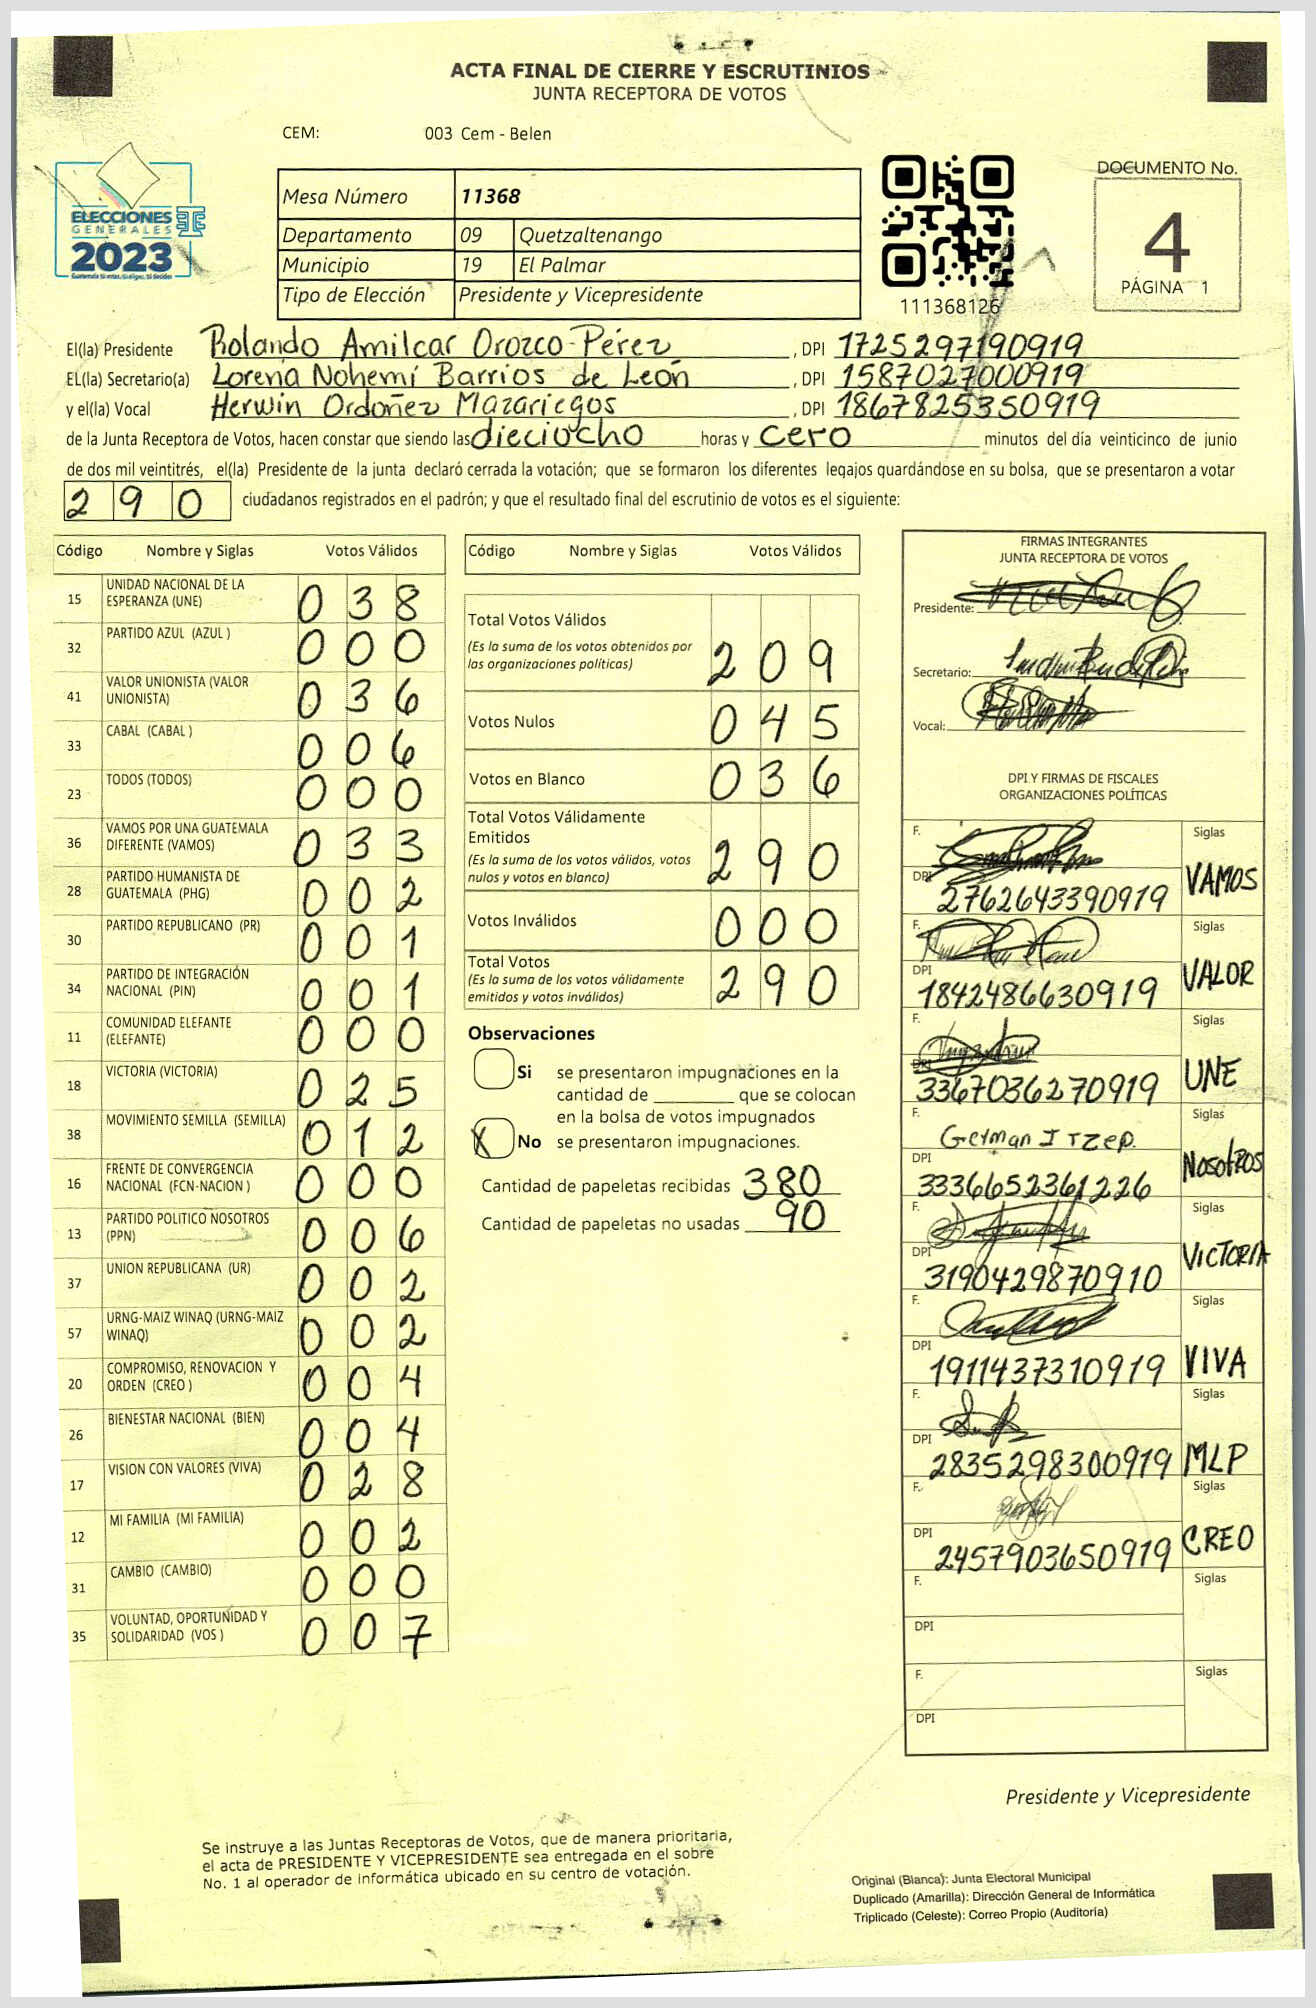 ACTA FINAL DE CIERRE Y ESCRUTINIOS
JUNTA RECEPTORA DE VOTOS
CEM: 003 Cem - Belen
ELECCIONES
GENERALES
2023
Mesa Número 11368
Departamento 09 Quetzaltenango
Municipio 19 El Palmar
Tipo de Elección Presidente y Vicepresidente
111368126
DOCUMENTO No.
4
PÁGINA 1
El(la) Presidente Rolando Amilcar Orozco Pérez, DPI 1725297190919
EL(la) Secretario(a) Lorena Nohemí Barrios de León, DPI 1587027000919
y el(la) Vocal Herwin Ordoñez Mazariegos, DPI 1867825350919
de la Junta Receptora de Votos, hacen constar que siendo las dieciocho horas y cero minutos del día veinticinco de junio
de dos mil veintitrés, el(la) Presidente de la junta declaró cerrada la votación; que se formaron los diferentes legajos quardándose en su bolsa, que se presentaron a votar
290 ciudadanos registrados en el padrón; y que el resultado final del escrutinio de votos es el siguiente:
Código Nombre y Siglas Votos Válidos
15 UNIDAD NACIONAL DE LA ESPERANZA (UNE) 038
32 PARTIDO AZUL (AZUL ) 000
41 VALOR UNIONISTA (VALOR UNIONISTA) 036
33 CABAL (CABAL ) 006
23 TODOS (TODOS) 000
36 VAMOS POR UNA GUATEMALA DIFERENTE (VAMOS) 033
28 PARTIDO HUMANISTA DE GUATEMALA (PHG) 002
30 PARTIDO REPUBLICANO (PR) 001
34 PARTIDO DE INTEGRACIÓN NACIONAL (PIN) 001
11 COMUNIDAD ELEFANTE (ELEFANTE) 000
18 VICTORIA (VICTORIA) 025
38 MOVIMIENTO SEMILLA (SEMILLA) 012
16 FRENTE DE CONVERGENCIA NACIONAL (FCN-NACION ) 000
13 PARTIDO POLITICO NOSOTROS (PPN) 006
37 UNION REPUBLICANA (UR) 002
57 URNG-MAIZ WINAQ (URNG-MAIZ WINAQ) 002
20 COMPROMISO, RENOVACION Y ORDEN (CREO ) 004
26 BIENESTAR NACIONAL (BIEN) 004
17 VISION CON VALORES (VIVA) 028
12 MI FAMILIA (MI FAMILIA) 002
31 CAMBIO (CAMBIO) 000
35 VOLUNTAD, OPORTUNIDAD Y SOLIDARIDAD (VOS ) 007
Código Nombre y Siglas Votos Válidos
Total Votos Válidos 209
(Es la suma de los votos obtenidos por
las organizaciones políticas)
Votos Nulos 045
Votos en Blanco 036
Total Votos Válidamente
Emitidos 290
(Es la suma de los votos válidos, votos
nulos y votos en blanco)
Votos Inválidos 000
Total Votos 290
(Es la suma de los votos válidamente
emitidos y votos inválidos)
Observaciones
Si se presentaron impugnaciones en la
cantidad de ________ que se colocan
en la bolsa de votos impugnados
X No se presentaron impugnaciones.
Cantidad de papeletas recibidas 380
Cantidad de papeletas no usadas 90
FIRMAS INTEGRANTES
JUNTA RECEPTORA DE VOTOS
Presidente:
Secretario:
Vocal:
DPI Y FIRMAS DE FISCALES
ORGANIZACIONES POLÍTICAS
F. Siglas
DPI 2762643390919 VAMOS
F. Siglas
DPI 1842486630919 VALOR
F. Siglas
DPI 3367036270919 UNE
F. German I Tzep. Siglas
DPI 3336652361226 NOSOTROS
F. Siglas
DPI 3190429870910 VICTORIA
F. Siglas
DPI 1911437310919 VIVA
F. Siglas
DPI 2835298300919 MLP
F. Siglas
DPI 2457903650919 CREO
F. Siglas
DPI
F. Siglas
DPI
Presidente y Vicepresidente
Se instruye a las Juntas Receptoras de Votos, que de manera prioritaria,
el acta de PRESIDENTE Y VICEPRESIDENTE sea entregada en el sobre
No. 1 al operador de informática ubicado en su centro de votación.
Original (Blanca): Junta Electoral Municipal
Duplicado (Amarilla): Dirección General de Informática
Triplicado (Celeste): Correo Propio (Auditoría)